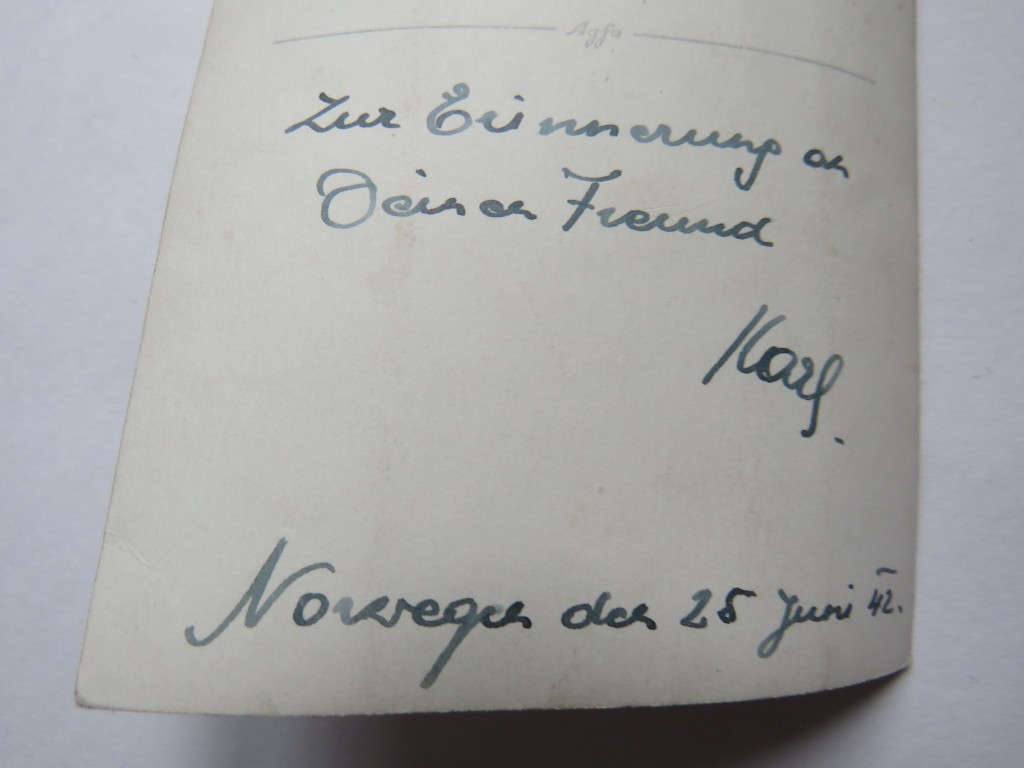 Agfa
Zur Erinnerung an
Deinen Freund
Karl.
Norwegen den 25 Juni 42.